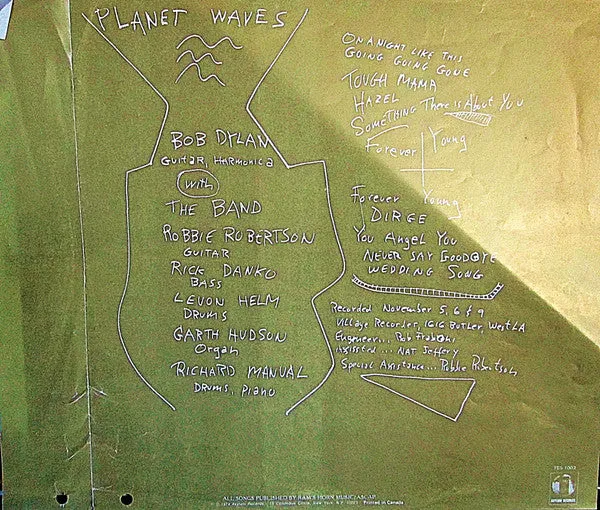 PLANET WAVES
BOB DYLAN
GUITAR, HARMONICA
with
THE BAND
ROBBIE ROBERTSON
GUITAR
RICK DANKO
BASS
LEVON HELM
DRUMS
GARTH HUDSON
Organ
RICHARD MANUAL
DRUMS, piano
ON A NIGHT LIKE THIS
GOING GOING GONE
TOUGH MAMA
HAZEL
SOMETHING There is About You
Forever Young
Forever Young
DIRGE
You Angel You
NEVER SAY GOODBYE
WEDDING SONG
Recorded November 5, 6 & 9
Village Recorder, 1616 BUTLER, West LA
Engineer... Rob Fraboni
Assisted... NAT Jeffery
Special Assistance... Robbie Robertson
ALL SONGS PUBLISHED BY RAM'S HORN MUSIC/ASCAP
© 1974 Asylum Records, 15 Columbus Circle, New York, N.Y. 10023 Printed in Canada
7ES 1003
ASYLUM RECORDS